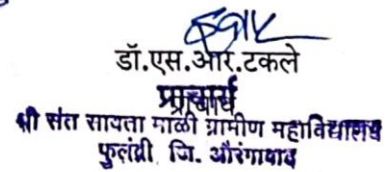 डॉ.एस.आर.टकले
प्राचार्य
श्री संत सावता माळी ग्रामीण महाविद्यालय
फुलंब्री जि. औरंगाबाद